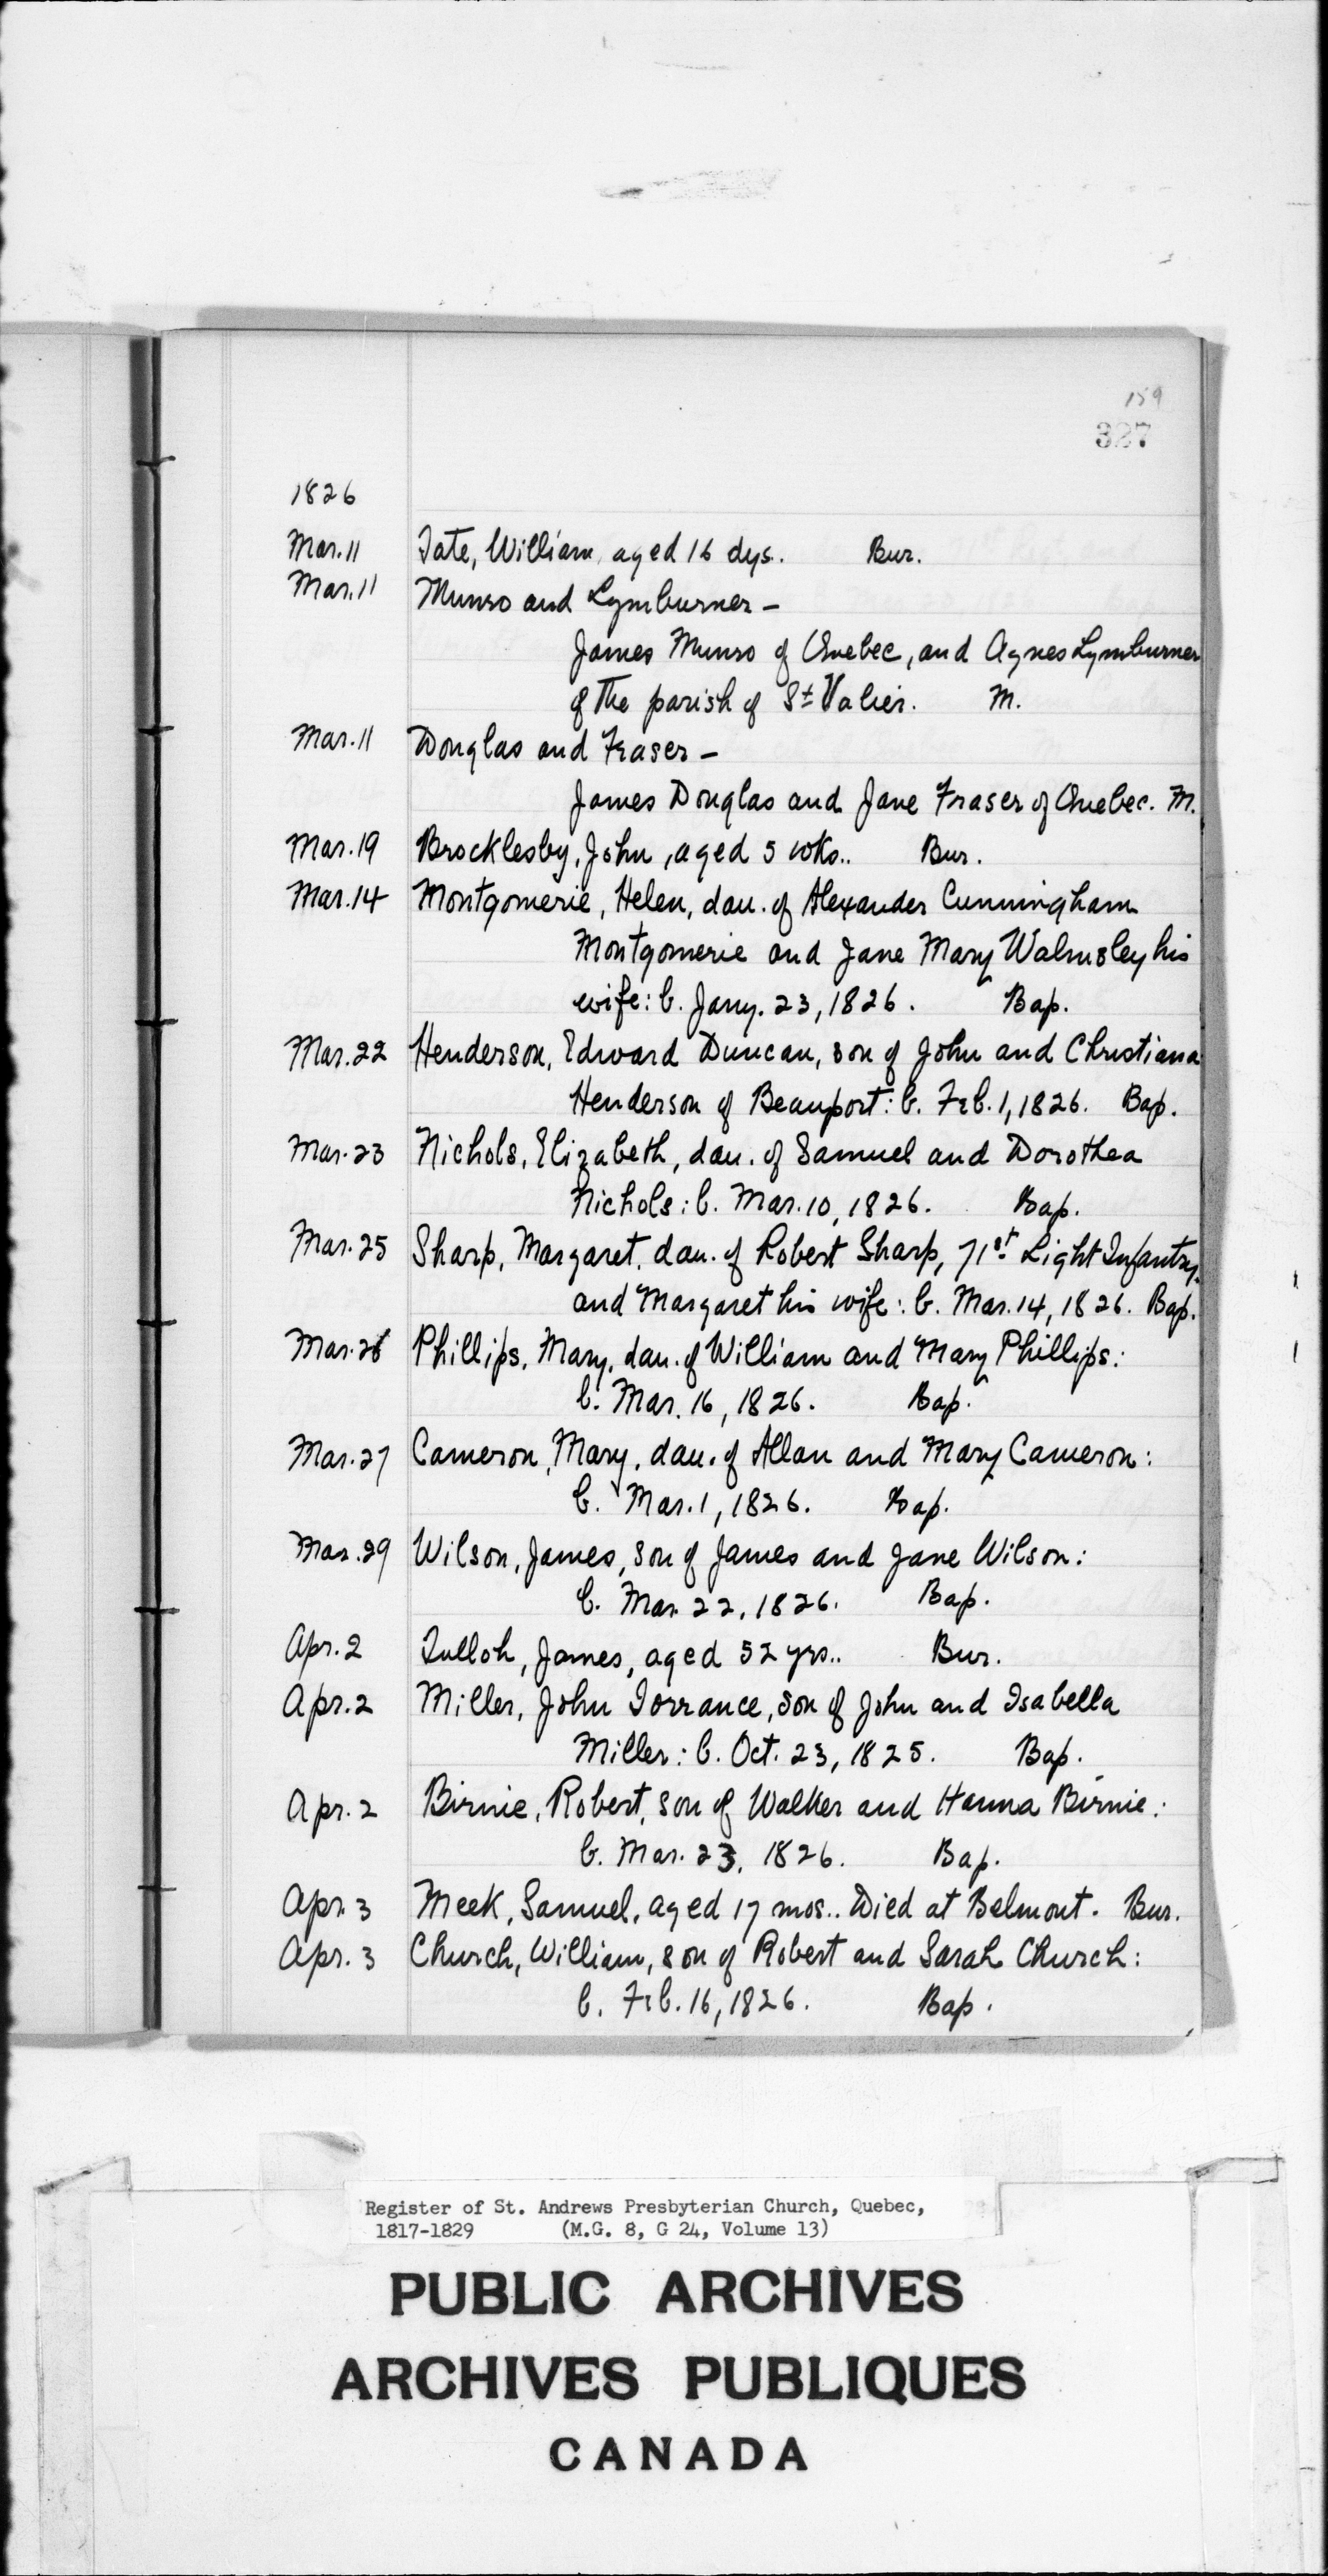 159
327
1826
Mar. 11 Tate, William, aged 16 dys. Bur.
Mar. 11 Munro and Lymburner —
James Munro of Quebec, and Agnes Lymburner
of the parish of St Valier. M.
Mar. 11 Douglas and Fraser —
James Douglas and Jane Fraser of Quebec. M.
Mar. 19 Brocklesby, John, aged 5 wks.. Bur.
Mar. 14 Montgomerie, Helen, dau. of Alexander Cunningham
Montgomerie and Jane Mary Walmsley his
wife: b. Jany. 23, 1826. Bap.
Mar. 22 Henderson, Edward Duncan, son of John and Christiana
Henderson of Beauport: b. Feb. 1, 1826. Bap.
Mar. 23 Nichols, Elizabeth, dau. of Samuel and Dorothea
Nichols: b. Mar. 10, 1826. Bap.
Mar. 25 Sharp, Margaret, dau. of Robert Sharp, 71st Light Infantry,
and Margaret his wife: b. Mar. 14, 1826. Bap.
Mar. 26 Phillips, Mary, dau. of William and Mary Phillips:
b. Mar. 16, 1826. Bap.
Mar. 27 Cameron, Mary, dau. of Allan and Mary Cameron:
b. Mar. 1, 1826. Bap.
Mar. 29 Wilson, James, son of James and Jane Wilson:
b. Mar. 22, 1826. Bap.
Apr. 2 Tulloh, James, aged 52 yrs.. Bur.
Apr. 2 Miller, John Torrance, son of John and Isabella
Miller: b. Oct. 23, 1825. Bap.
Apr. 2 Birnie, Robert, son of Walker and Hanna Birnie:
b. Mar. 23, 1826. Bap.
Apr. 3 Meek, Samuel, aged 17 mos.. Died at Belmont. Bur.
Apr. 3 Church, William, son of Robert and Sarah Church:
b. Feb. 16, 1826. Bap.
Register of St. Andrews Presbyterian Church, Quebec,
1817-1829 (M.G. 8, G 24, Volume 13)
PUBLIC ARCHIVES
ARCHIVES PUBLIQUES
CANADA